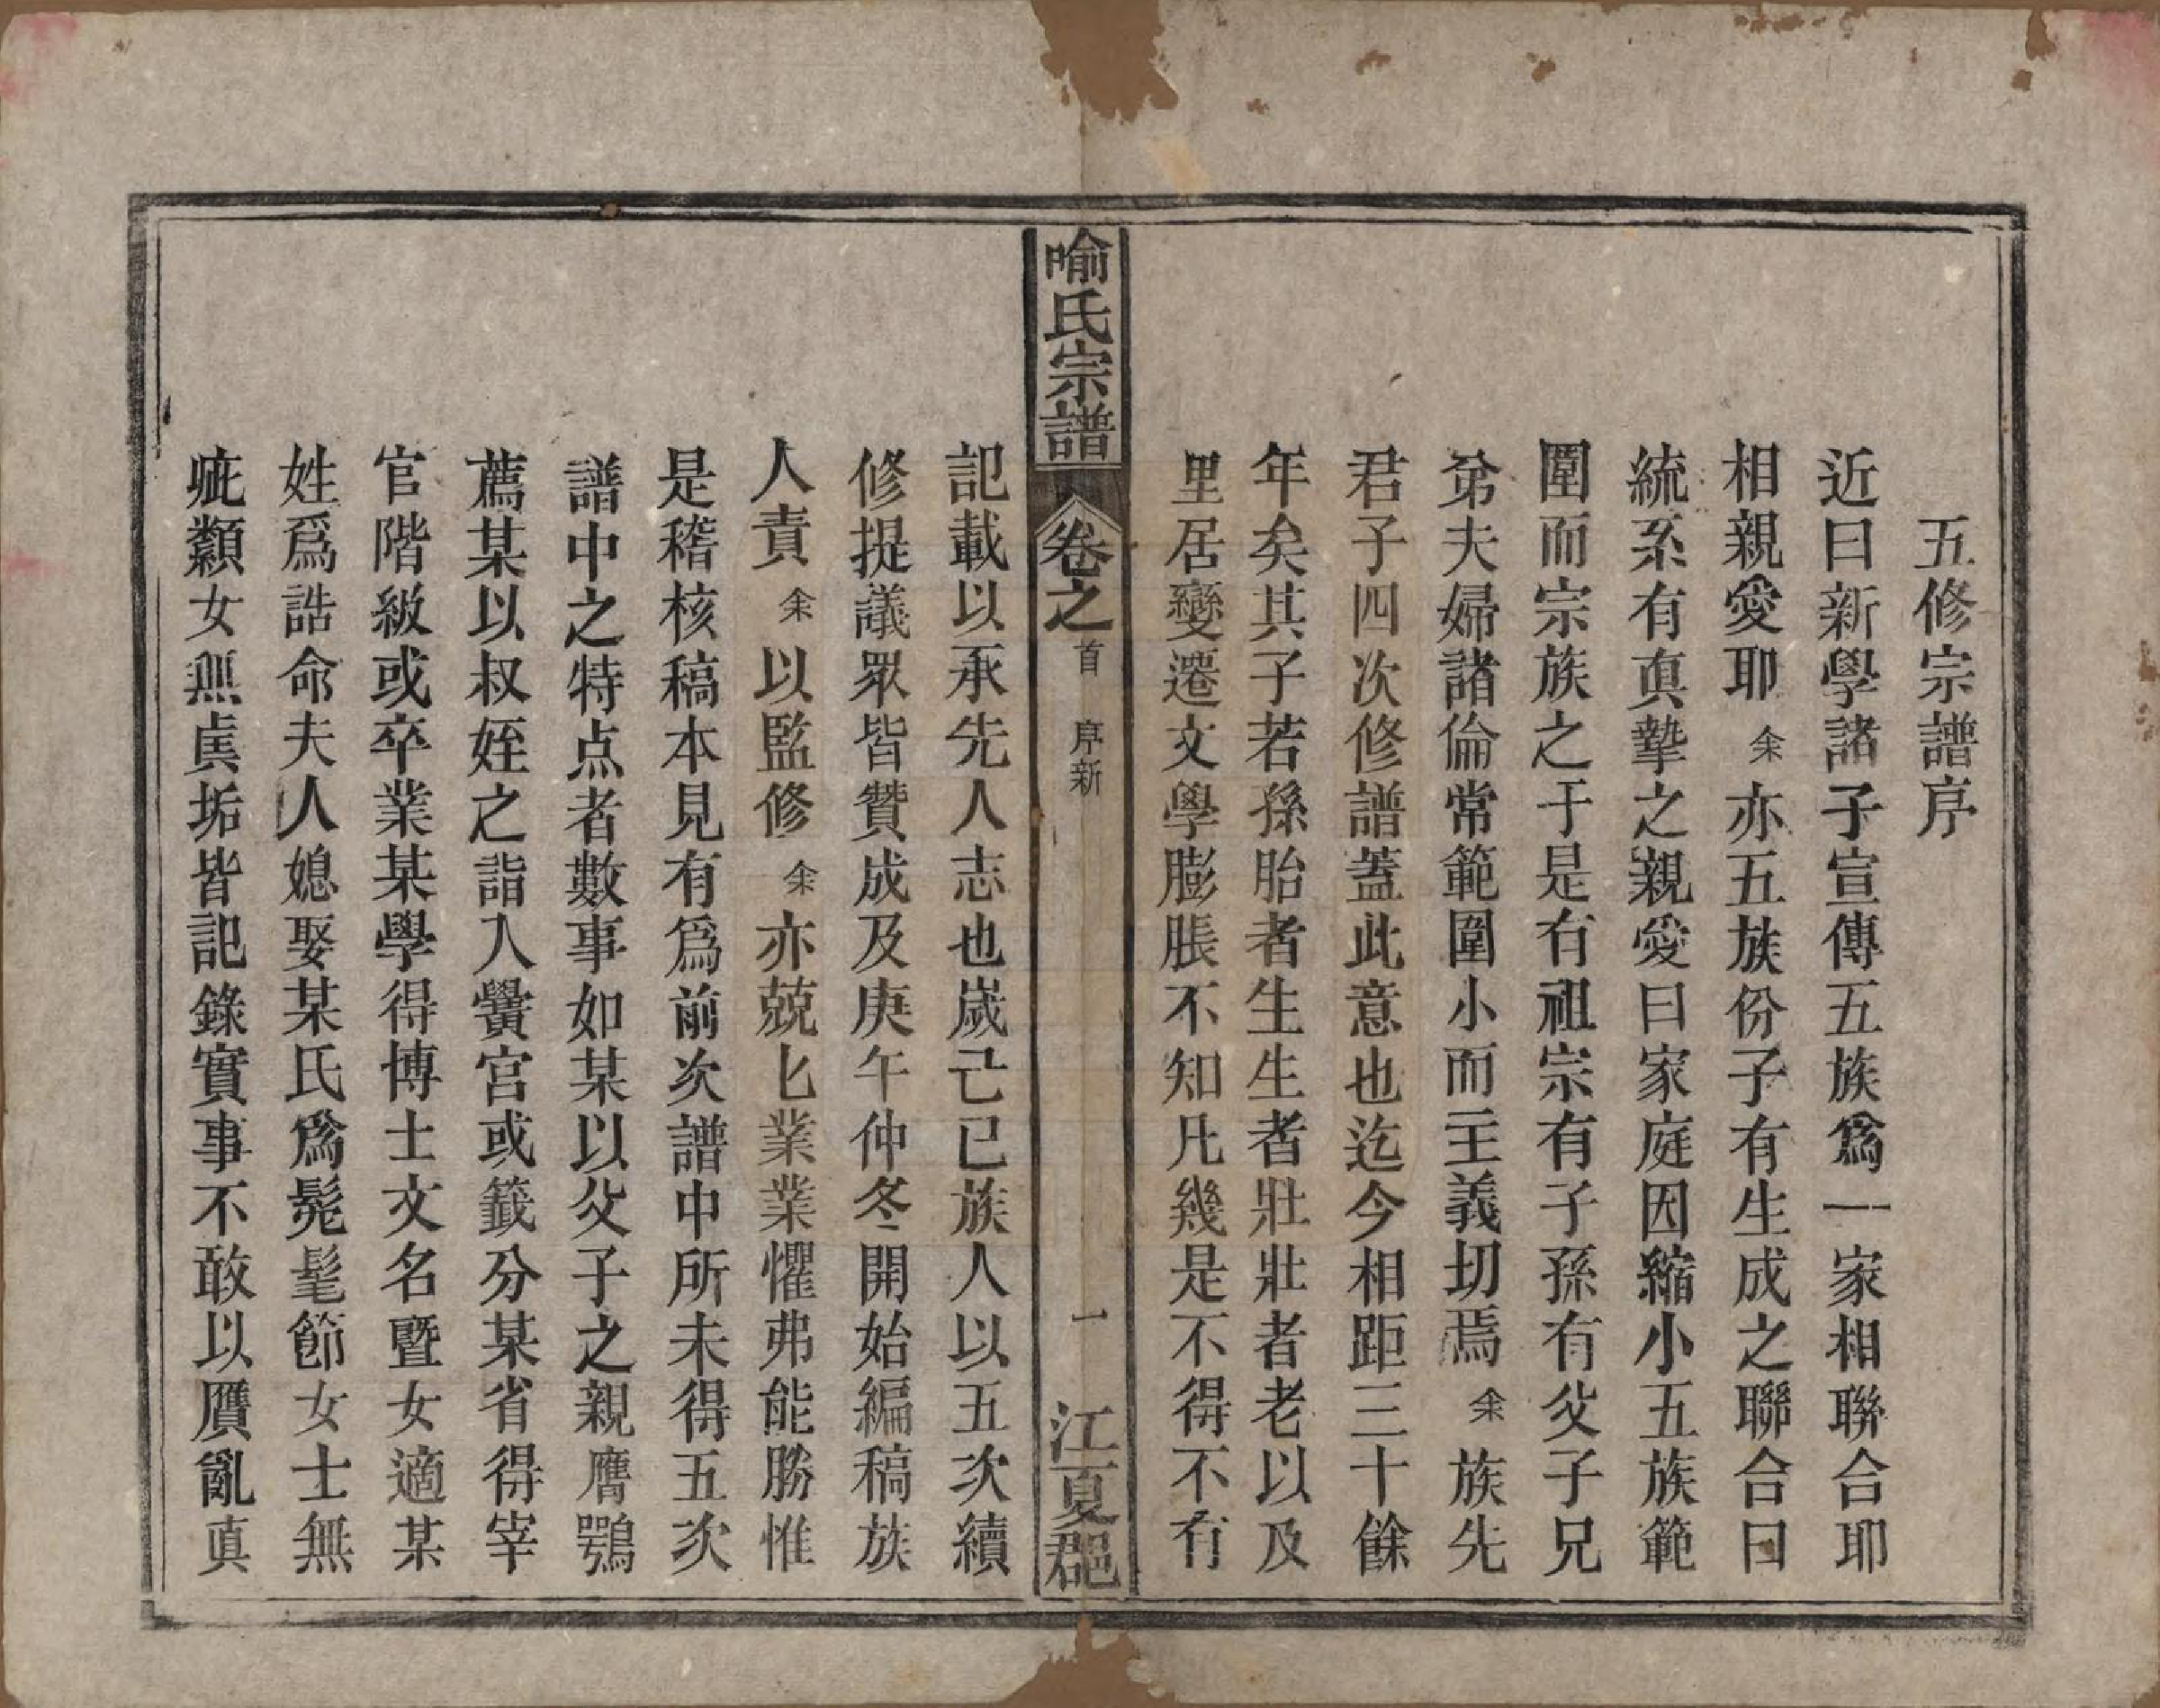 五修宗譜序
近日新學諸子宣傳五族爲一家相聯合耶
相親愛耶余亦五族份子有生成之聯合曰
統系有眞摯之親愛曰家庭因縮小五族範
圍而宗族之于是有祖宗有子孫有父子兄
弟夫婦諸倫常範圍小而主義切焉余族先
君子四次修譜蓋此意也迄今相距三十餘
年矣其子若孫胎者生生者壯壯者老以及
里居變遷文學膨脹不知凡幾是不得不有
喻氏宗譜 卷之首 序新 一 江夏郡
記載以承先人志也歲己巳族人以五次續
修提議眾皆贊成及庚午仲冬開始編稿族
人責余以監修余亦兢匕業業懼弗能勝惟
是稽核稿本見有爲前次譜中所未得五次
譜中之特点者數事如某以父子之親膺鶚
薦某以叔姪之詣入黌宮或籤分某省得宰
官階級或卒業某學得博士文名暨女適某
姓爲誥命夫人媳娶某氏爲髡髦節女士無
疵纇女無㝈垢皆記錄實事不敢以贋亂眞